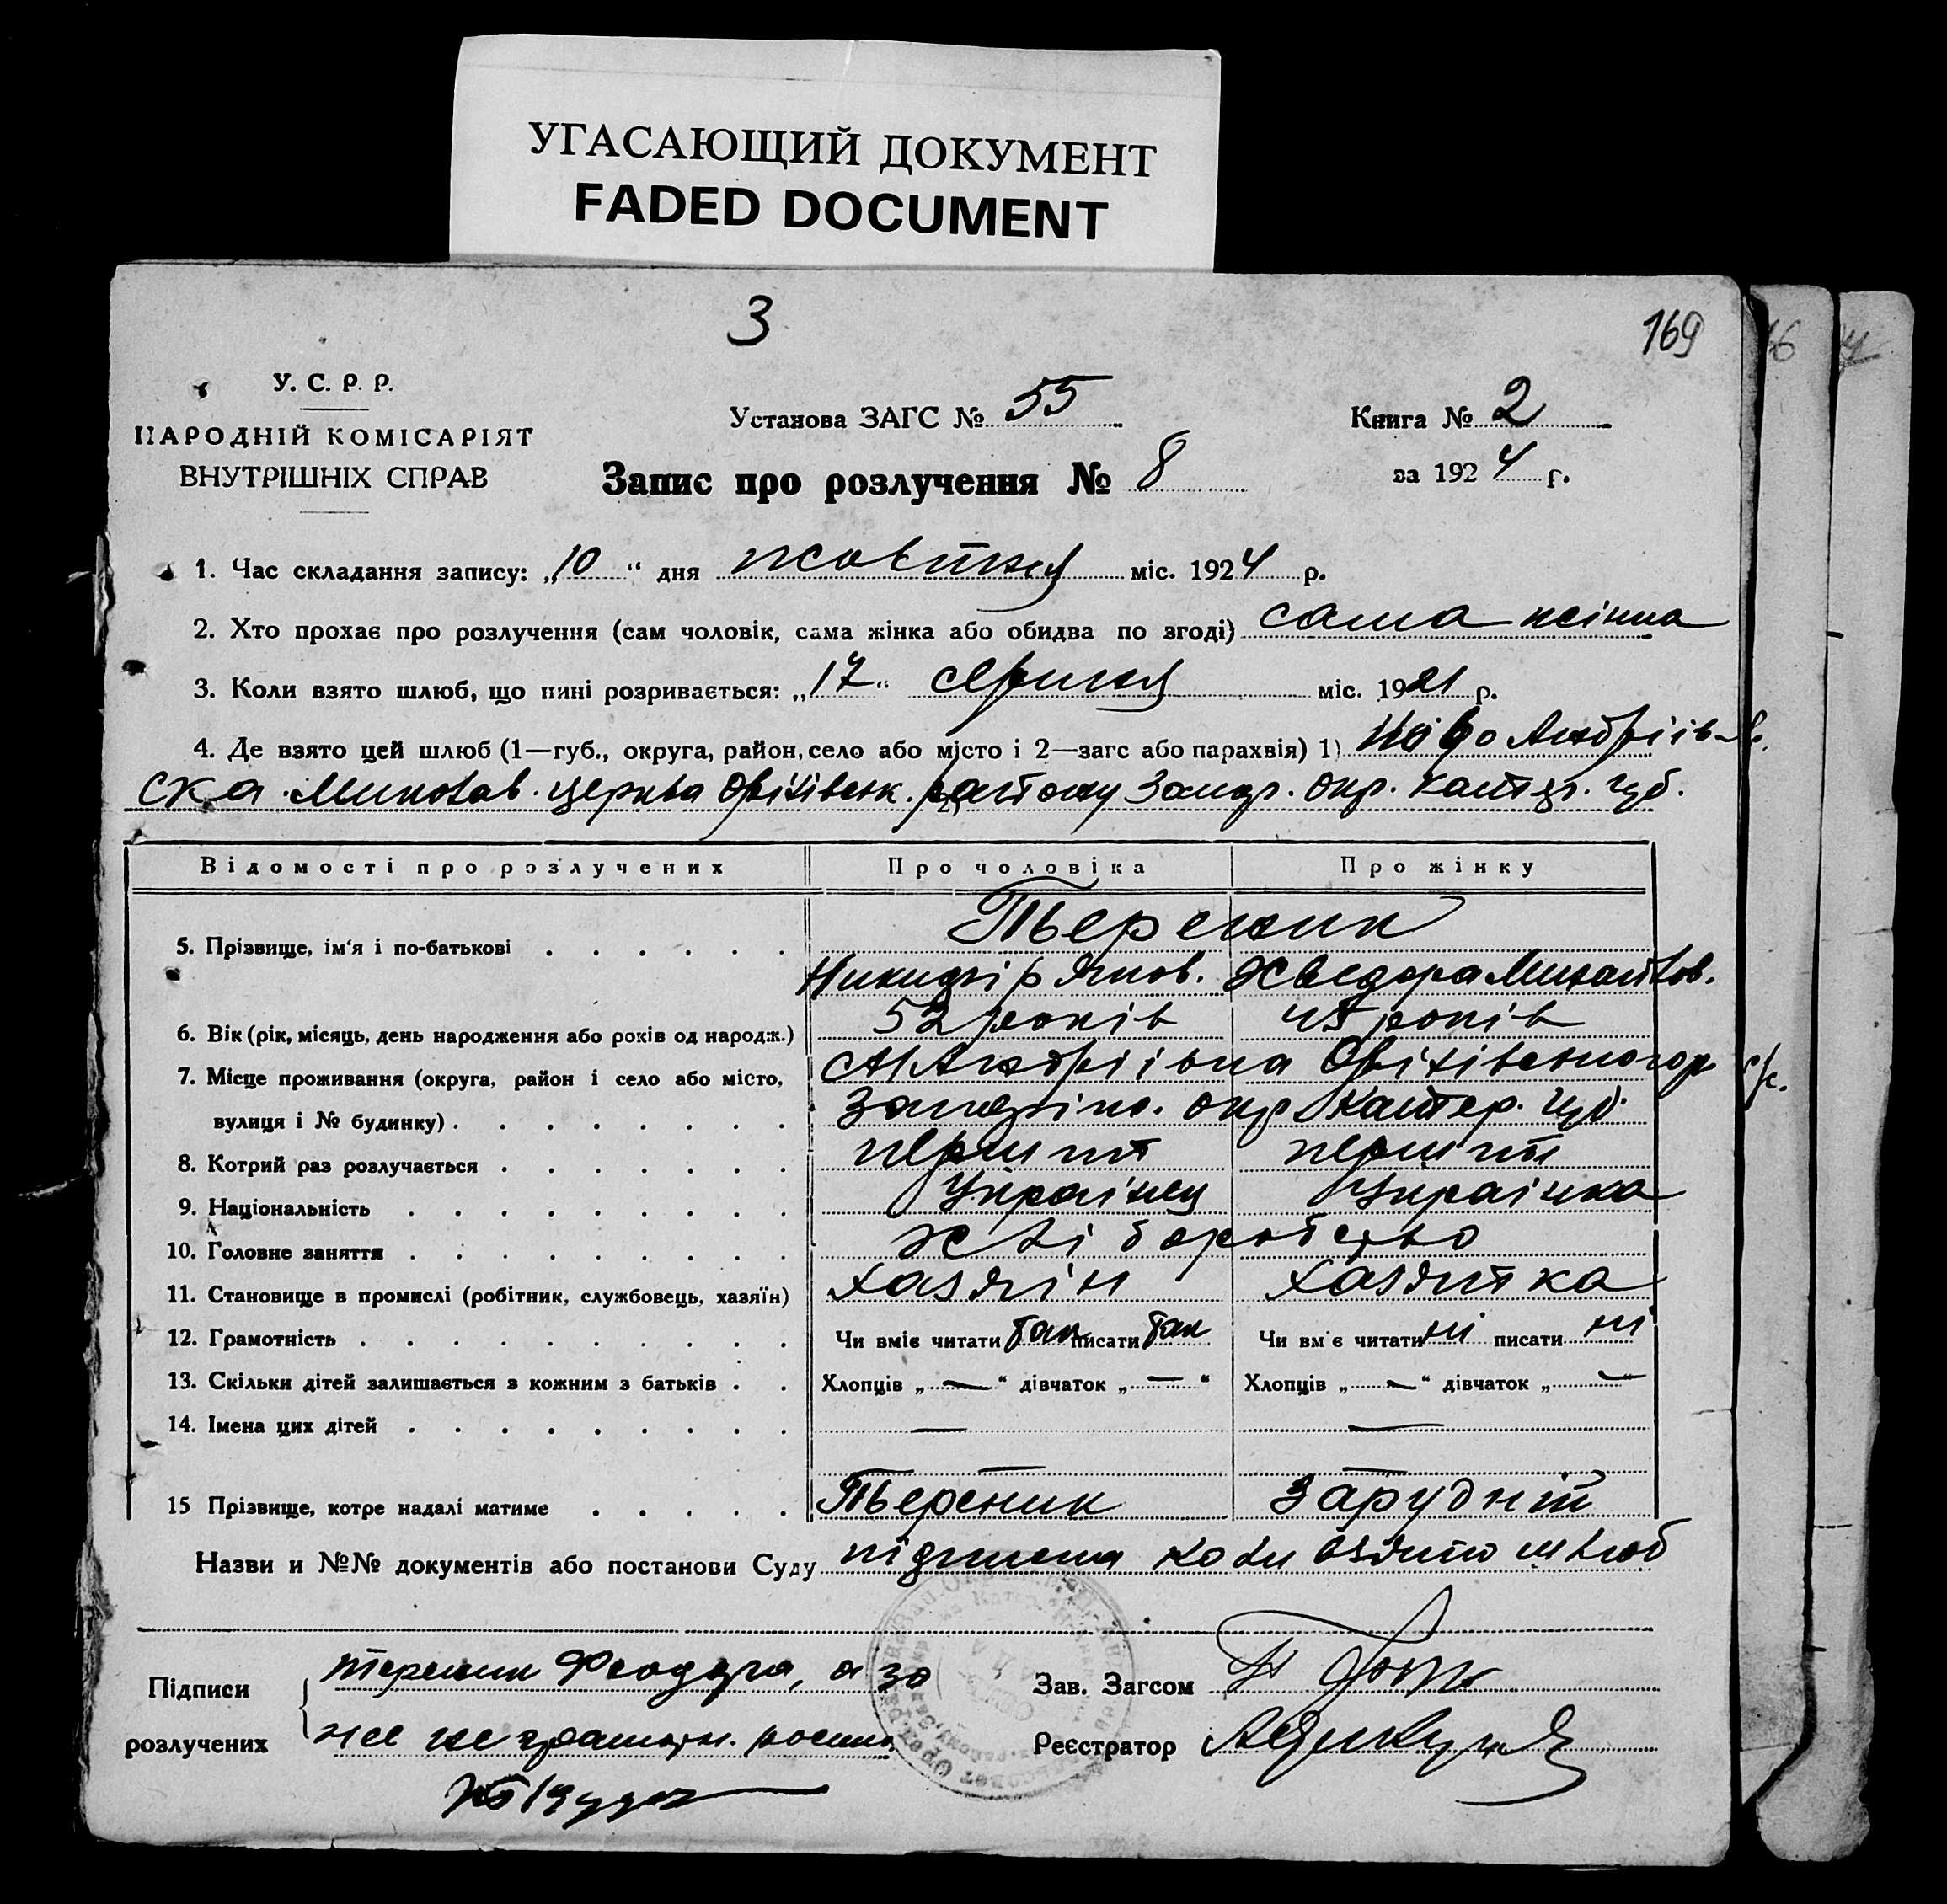 УГАСАЮЩИЙ ДОКУМЕНТ
FADED DOCUMENT
3
169
У. С. Р. Р.
НАРОДНІЙ КОМІСАРІЯТ
ВНУТРІШНІХ СПРАВ
Установа ЗАГС № 55
Книга № 2
Запис про розлучення № 8
за 1924 г.
1. Час складання запису: „10“ дня жовтня міс. 1924 р.
2. Хто прохає про розлучення (сам чоловік, сама жінка або обидва по згоді) сама жінка
3. Коли взято шлюб, що нині розривається: „17“ серпня міс. 1921 р.
4. Де взято цей шлюб (1—губ., округа, район, село або місто і 2—загс або парахвія) 1) Ново Андріів-
ска церква 2) району Запор. окр. Катер. губ.
Відомості про розлучених
Про чоловіка
Про жінку
5. Прізвище, ім'я і по-батькові
Тьереник
Никифір Яков. Хведора Михайлов.
6. Вік (рік, місяць, день народження або років од народж.) 52 років 45 років
7. Місце проживання (округа, район і село або місто,
вулиця і № будинку) окр Катер. губ.
8. Котрий раз розлучається перший перший
9. Національність Українец Українка
10. Головне заняття хліборобство
11. Становище в промислі (робітник, службовець, хазяїн) Хазяін Хазяйка
12. Грамотність Чи вміє читати так писати так Чи вміє читати ні писати ні
13. Скільки дітей залишається з кожним з батьків Хлопців „—“ дівчаток „—“ Хлопців „—“ дівчаток „—“
14. Імена цих дітей — —
— —
15 Прізвище, котре надалі матиме Тьереник Зарудній
Назви и №№ документів або постанови Суду підписка коли взято шлюб
Підписи
розлучених
Феодора, а за
нее не грамотн.
Зав. Загсом
Реєстратор